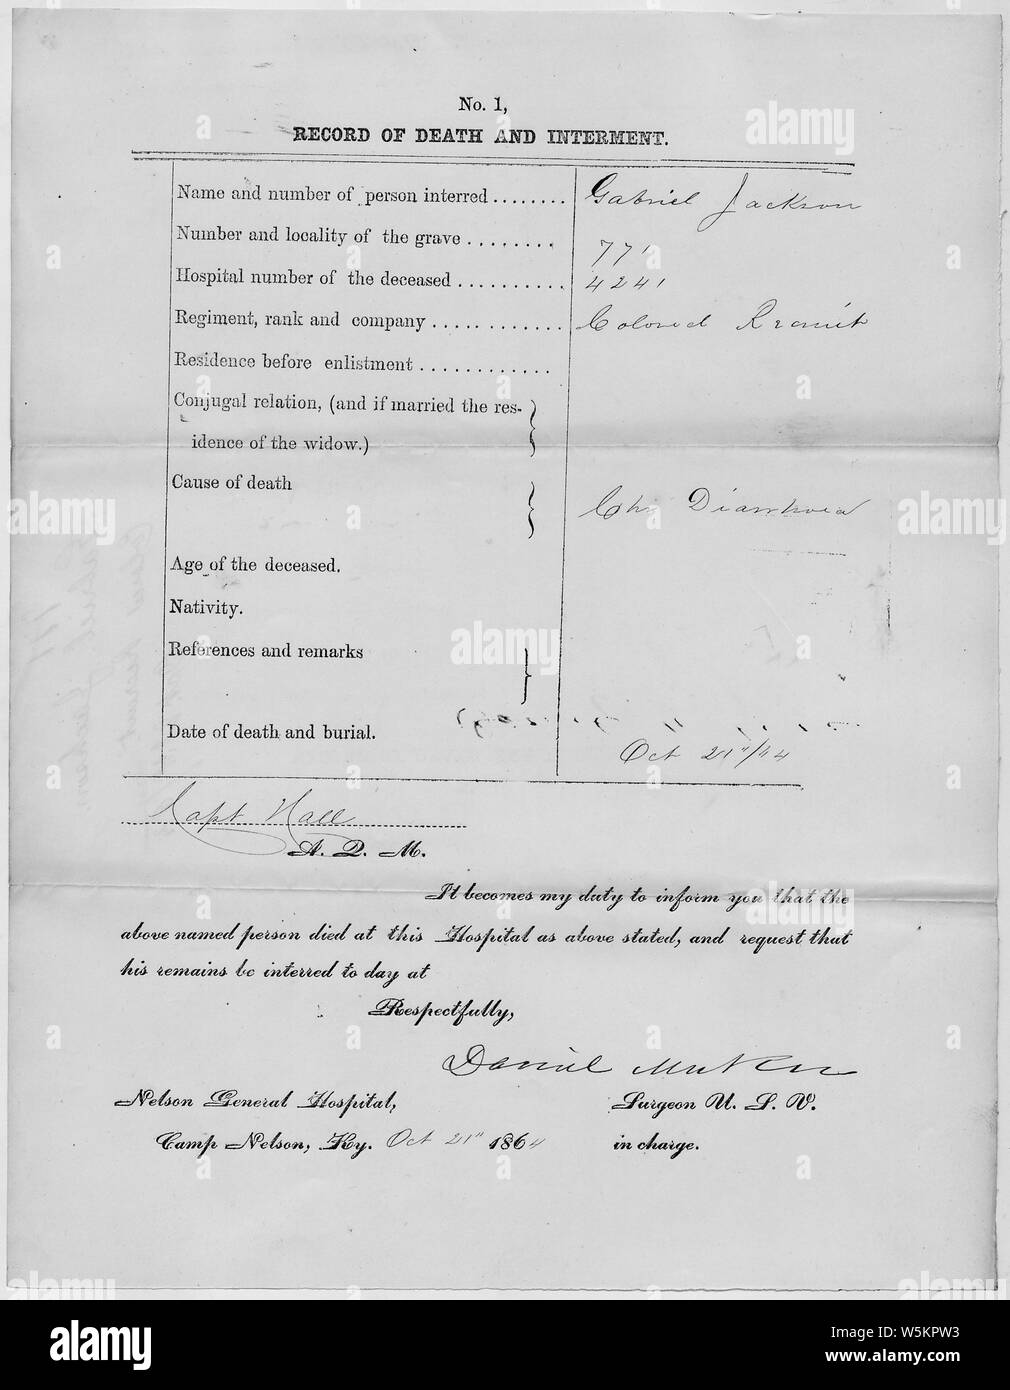 No. 1,
RECORD OF DEATH AND INTERMENT.
Name and number of person interred ........ Gabriel Jackson
Number and locality of the grave ........ 771
Hospital number of the deceased .......... 4241
Regiment, rank and company ............ Colored Recruit
Residence before enlistment ............
Conjugal relation, (and if married the res-
idence of the widow.)
Cause of death
Chr Diarrhoea
Age of the deceased.
Nativity.
References and remarks
Date of death and burial.
Oct 21"/64
Capt Hall
A. Q. M.
It becomes my duty to inform you that the
above named person died at this Hospital as above stated, and request that
his remains be interred to day at
Respectfully,
Daniel
Nelson General Hospital, Surgeon U. S. V.
Camp Nelson, Ky. Oct 21" 1864 in charge.
alamy
alamy
Image ID: W5KPW3
www.alamy.com